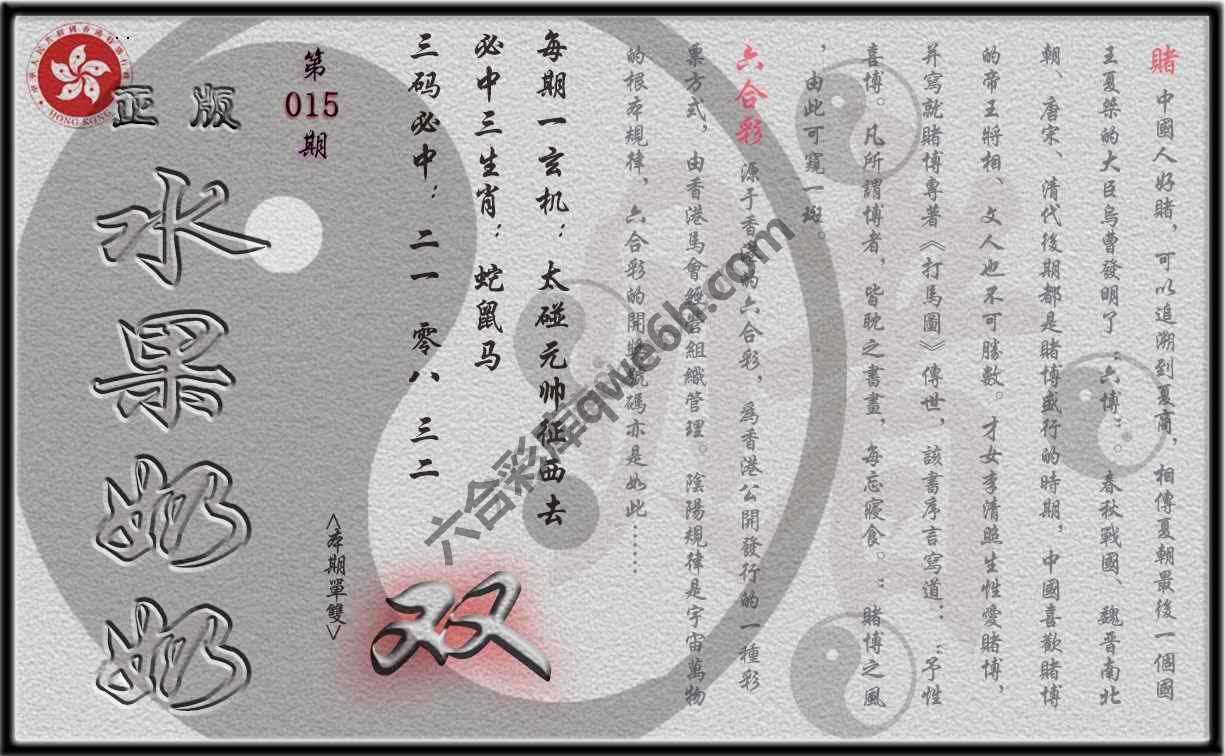 賭 中國人好賭，可以追溯到夏商，相傳夏朝最後一個國
王夏桀的大臣烏曹發明了：六博：。春秋戰國、魏晋南北
朝、唐宋、清代後期都是賭博盛行的時期，中國喜歡賭博
的帝王將相、文人也不可勝數。才女李清照生性愛賭博，
并寫就賭博專著《打馬圖》傳世，該書序言寫道：：予性
喜博。凡所謂博者，皆耽之書畫，每忘寢食。：賭博之風
，由此可窺一斑。
六合彩 源于香港的六合彩，爲香港公開發行的一種彩
票方式，由香港馬會經管組織管理。陰陽規律是宇宙萬物
的根本規律、六合彩的開獎號碼亦是如此……
每期一玄机：太碰元帅征西去
必中三生肖：蛇鼠马
三码必中：二一 零八 三二
第
015
期
<本期單雙>
双
正版
水果奶奶
HONG KONG
六合彩庫qwe6h.com